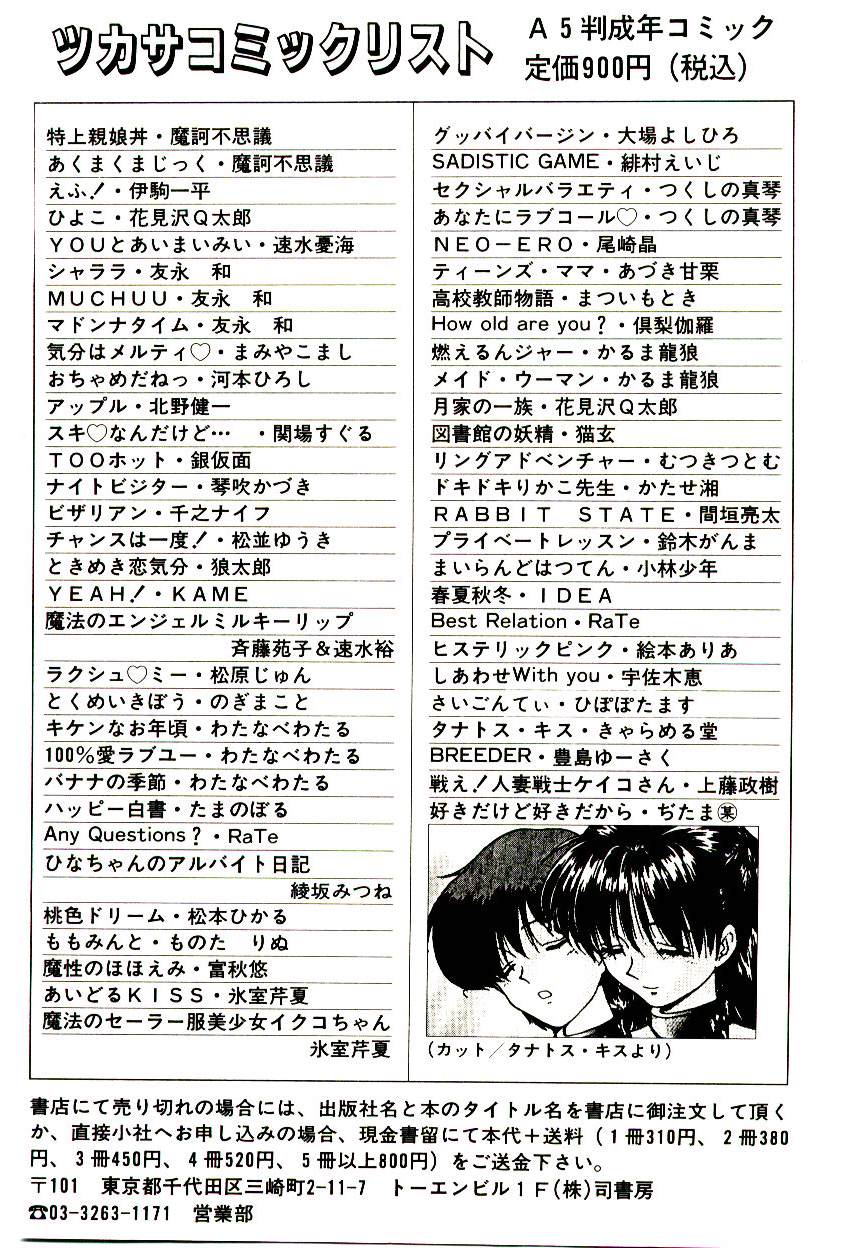 ツカサコミックリスト
A5判成年コミック
定価900円(税込)
特上親娘丼・魔訶不思議
あくまくまじっく・魔訶不思議
えふ!・伊駒一平
ひよこ・花見沢Q太郎
YOUとあいまいみい・速水憂海
シャララ・友永 和
MUCHUU・友永 和
マドンナタイム・友永 和
気分はメルティ♡・まみやこまし
おちゃめだねっ・河本ひろし
アップル・北野健一
スキ♡なんだけど… ・関場すぐる
TOOホット・銀仮面
ナイトビジター・琴吹かづき
ビザリアン・千之ナイフ
チャンスは一度!・松並ゆうき
ときめき恋気分・狼太郎
YEAH!・KAME
魔法のエンジェルミルキーリップ
斉藤苑子&速水裕
ラクシュ♡ミー・松原じゅん
とくめいきぼう・のぎまこと
キケンなお年頃・わたなべわたる
100%愛ラブユー・わたなべわたる
バナナの季節・わたなべわたる
ハッピー白書・たまのぼる
Any Questions?・RaTe
ひなちゃんのアルバイト日記
綾坂みつね
桃色ドリーム・松本ひかる
ももみんと・ものた りぬ
魔性のほほえみ・富秋悠
あいどるKISS・氷室芹夏
魔法のセーラー服美少女イクコちゃん
氷室芹夏
グッバイバージン・大場よしひろ
SADISTIC GAME・緋村えいじ
セクシャルバラエティ・つくしの真琴
あなたにラブコール♡・つくしの真琴
NEO-ERO・尾崎晶
ティーンズ・ママ・あづき甘栗
高校教師物語・まついもとき
How old are you?・倶梨伽羅
燃えるんジャー・かるま龍狼
メイド・ウーマン・かるま龍狼
月家の一族・花見沢Q太郎
図書館の妖精・猫玄
リングアドベンチャー・むつきつとむ
ドキドキりかこ先生・かたせ湘
RABBIT STATE・間垣亮太
プライベートレッスン・鈴木がんま
まいらんどはつてん・小林少年
春夏秋冬・IDEA
Best Relation・RaTe
ヒステリックピンク・絵本ありあ
しあわせWith you・宇佐木恵
さいごんてぃ・ひぽぽたます
タナトス・キス・きゃらめる堂
BREEDER・豊島ゆーさく
戦え!人妻戦士ケイコさん・上藤政樹
好きだけど好きだから・ぢたま㊙
(カット/タナトス・キスより)
書店にて売り切れの場合には、出版社名と本のタイトル名を書店に御注文して頂く
か、直接小社へお申し込みの場合、現金書留にて本代+送料(1冊310円、2冊380
円、3冊450円、4冊520円、5冊以上800円)をご送金下さい。
〒101 東京都千代田区三崎町2-11-7 トーエンビル1F(株)司書房
☎03-3263-1171 営業部